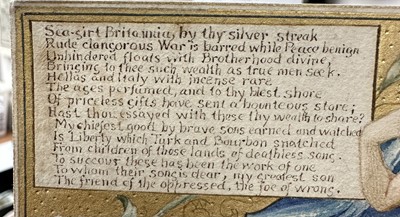 Sea-girt Britannia, by thy silver streak
Rude clangorous War is barred while Peace benign
Unhindered floats with Brotherhood divine,
Bringing to thee such wealth as true men seek.
Hellas and Italy with incense rare
The ages perfumed, and to thy blest shore
Of priceless gifts have sent a bounteous store;
Hast thou essayed with these thy wealth to share?
My chiefest good by brave sons earned and watched
Is Liberty which Turk and Bourbon snatched
From children of those lands of deathless song.
To succour these has been the work of one
To whom their song is dear, my greatest son
The friend of the oppressed, the foe of wrong.